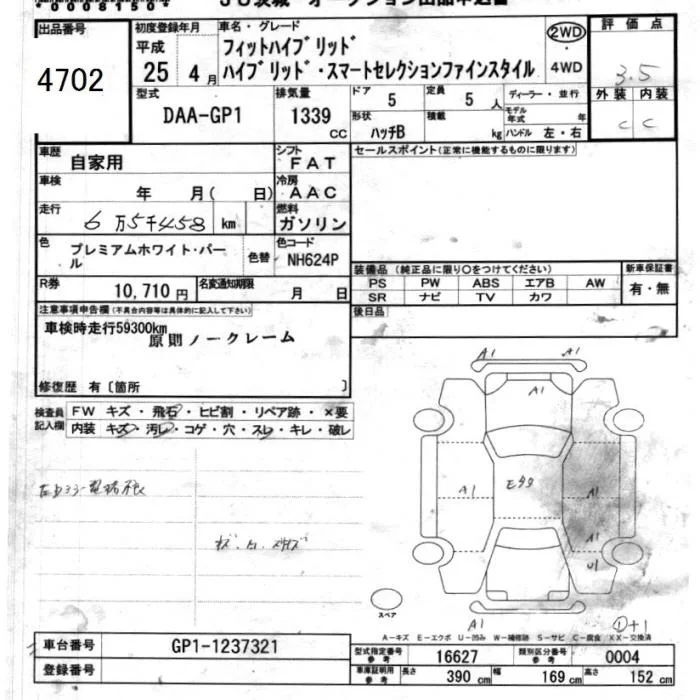 出品番号
4702
初度登録年月
平成
25年4月
車名・グレード
フィットハイブリッド
ハイブリッド・スマートセレクションファインスタイル
2WD
4WD
評価点
3.5
外装 内装
C C
型式
DAA-GP1
排気量
1339 CC
ドア 5
定員 5 人
ディーラー・並行
形状 ハッチB
積載 kg
モデル年式 年
ハンドル 左・右
車歴 自家用
シフト FAT
セールスポイント(正常に機能するものに限ります)
車検 年 月( 日)
冷房 AAC
走行 6万5千458 km
燃料 ガソリン
色 プレミアムホワイト・パール
色替
色コード NH624P
装備品(純正品に限り○をつけてください)
新車保証書
PS PW ABS エアB AW
SR ナビ TV カワ
有・無
R券 10,710円
名変通知期限 月 日
後日品
注意事項申告欄(不具合内容等は具体的に記入して下さい)
車検時走行59300km
原則ノークレーム
修復歴 有〔箇所 〕
検査員記入欄
FW キズ・飛石・ヒビ割・リペア跡・×要
内装 キズ・汚レ・コゲ・穴・スレ・キレ・破レ
A1 A1
A1
A1 E99 A1
A1
U1
A1
スペア
A-キズ E-エクボ U-凹み W-補修跡 S-サビ C-腐食 XX-交換済
車台番号 GP1-1237321
登録番号
型式指定番号 参考 16627
類別区分番号 参考 0004
車庫証明用 参考 長さ 390 cm 幅 169 cm 高さ 152 cm